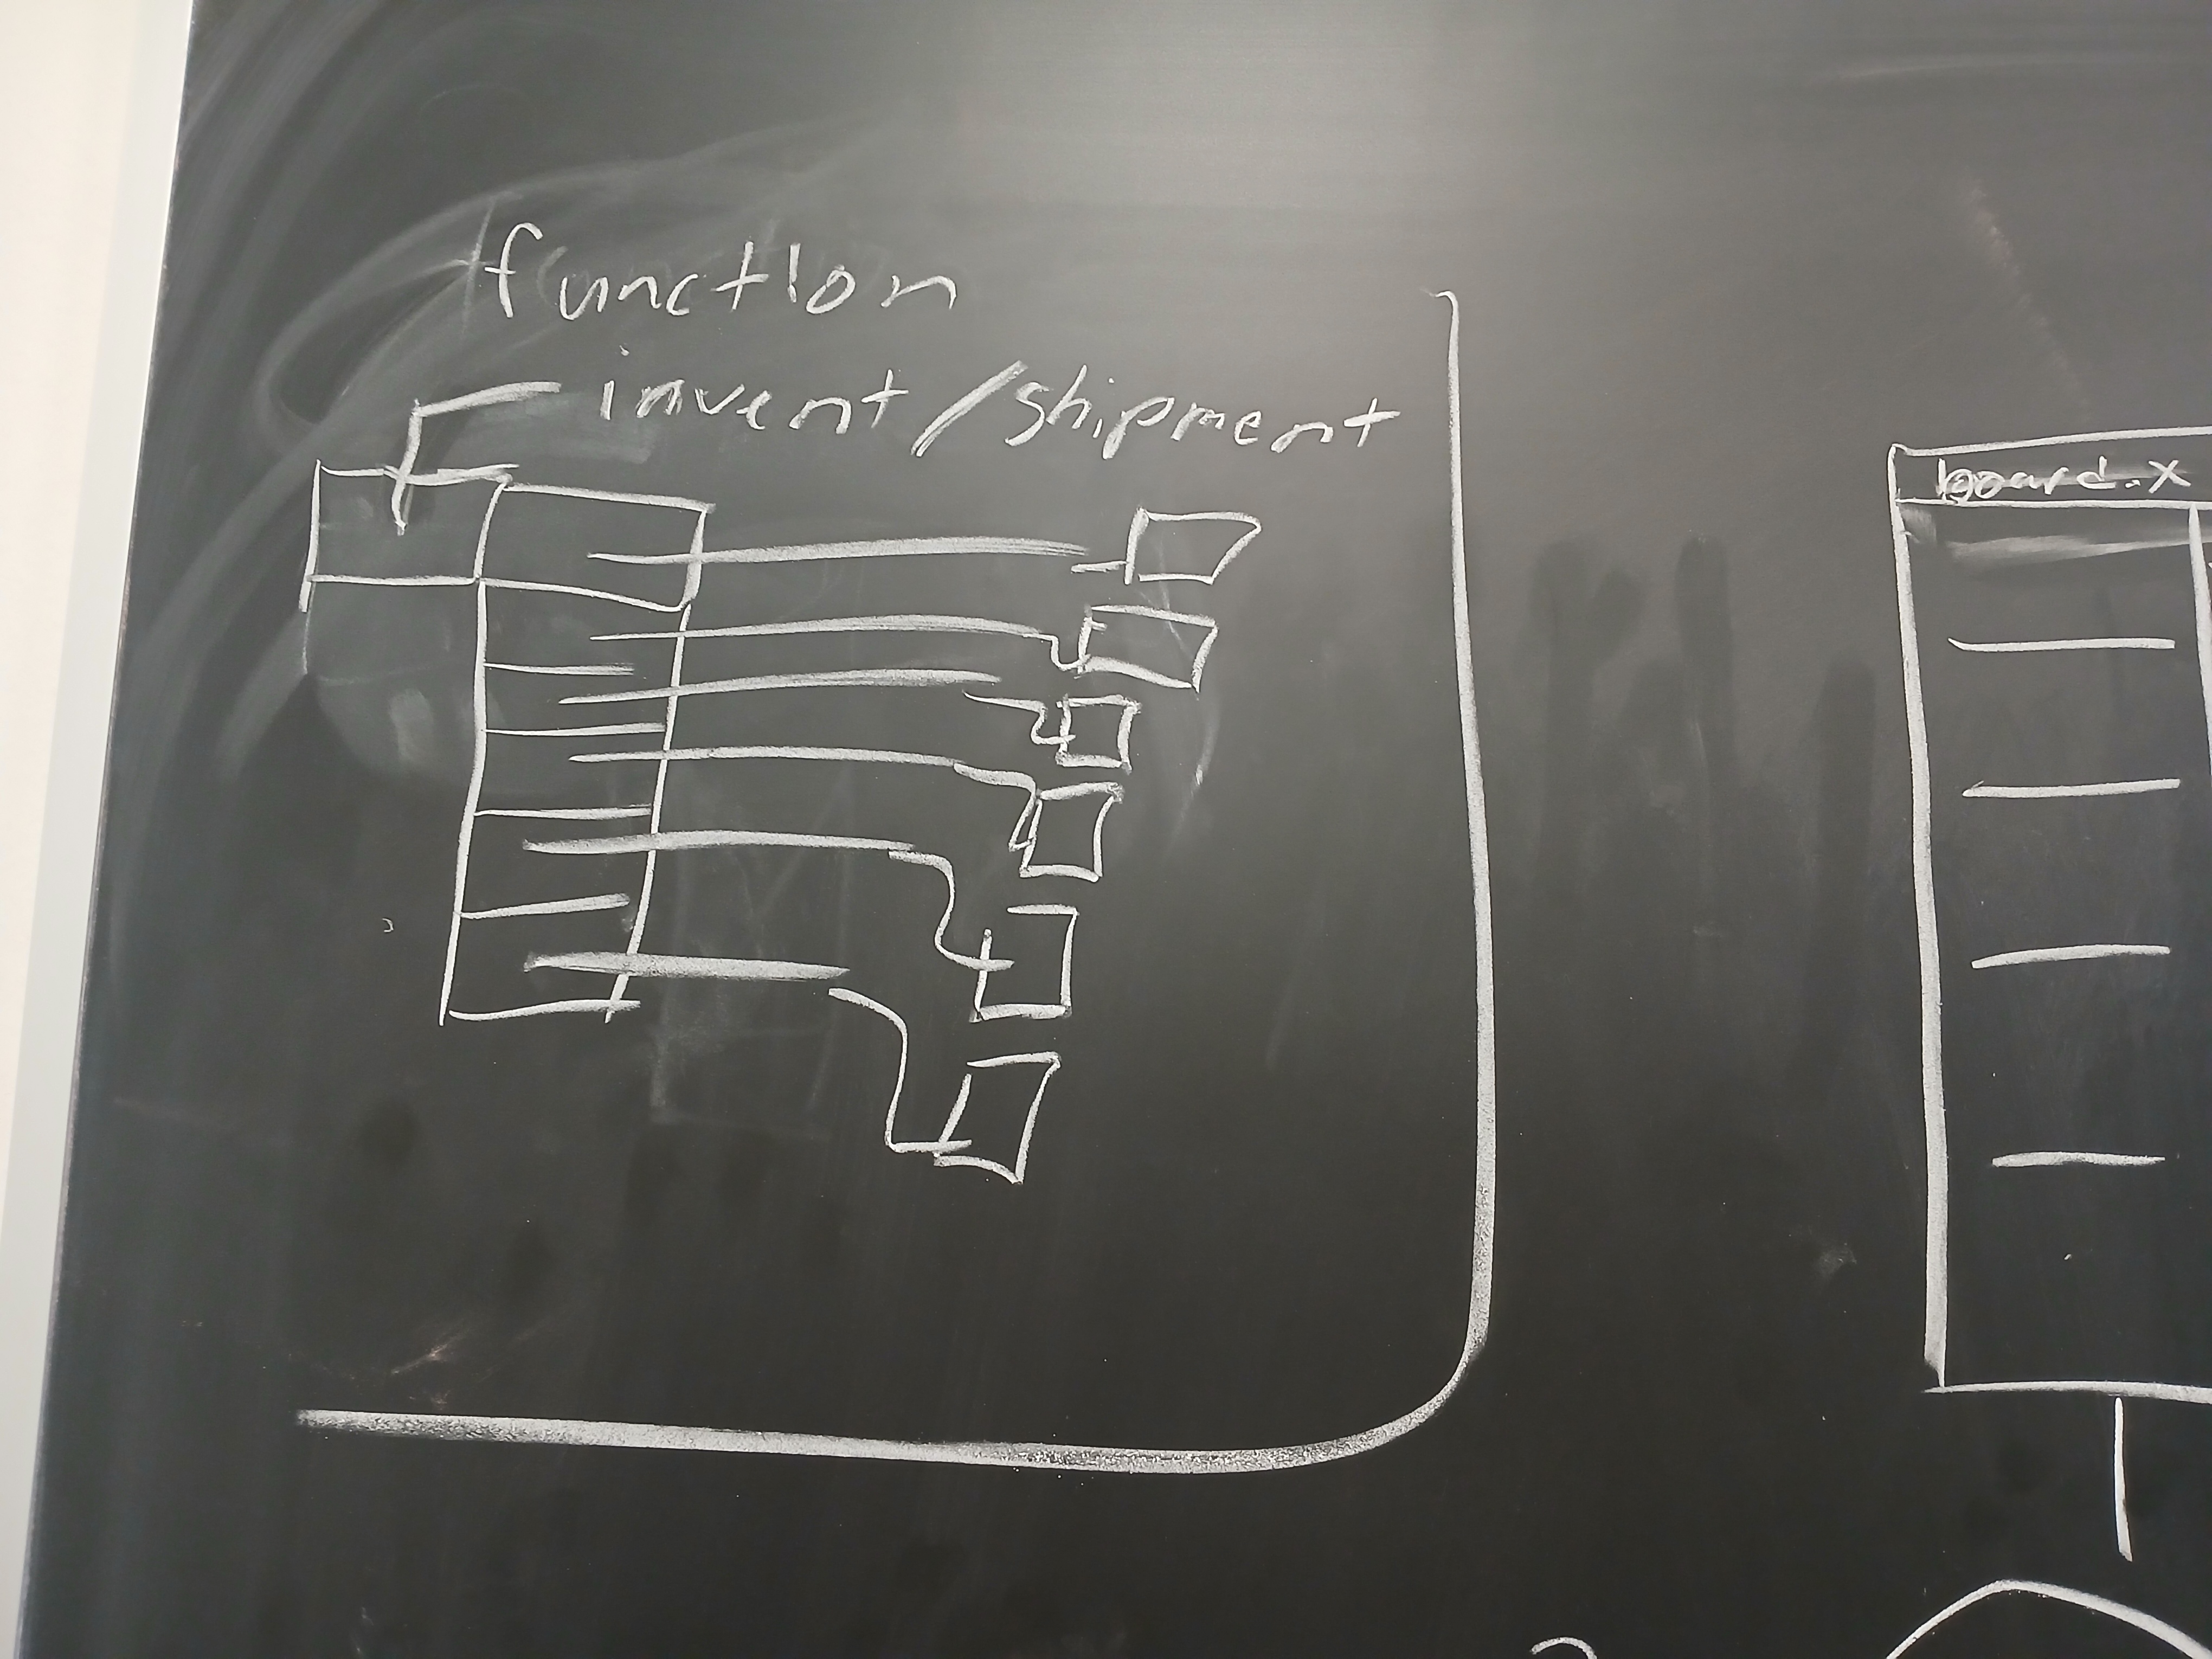 function
invent/shipment
board.x